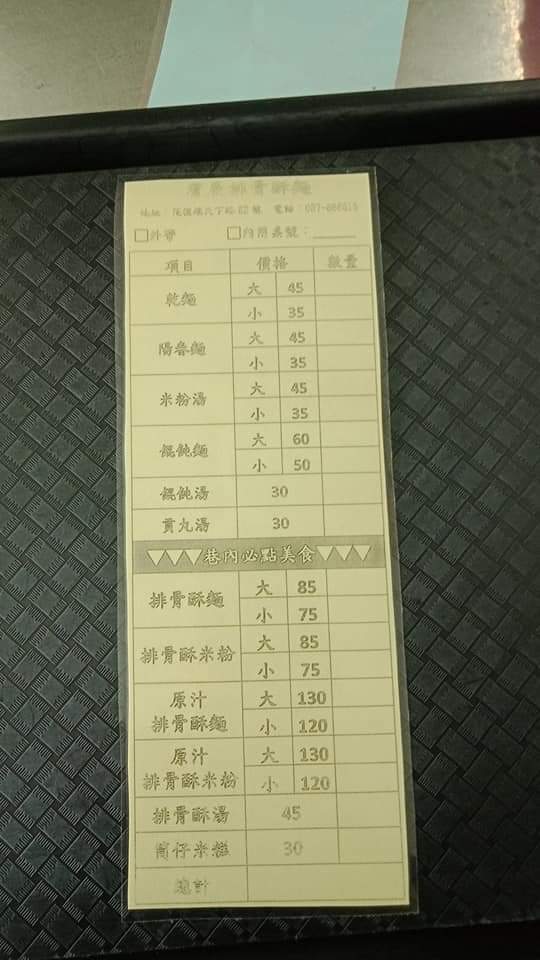 排骨酥麵
□外帶 □內用桌號：______
項目 價格 數量
乾麵 大 45
小 35
陽春麵 大 45
小 35
米粉湯 大 45
小 35
餛飩麵 大 60
小 50
餛飩湯 30
貢丸湯 30
▽▽▽巷內必點美食▽▽▽
排骨酥麵 大 85
小 75
排骨酥米粉 大 85
小 75
原汁 大 130
排骨酥麵 小 120
原汁 大 130
排骨酥米粉 小 120
排骨酥湯 45
筒仔米糕 30
總計